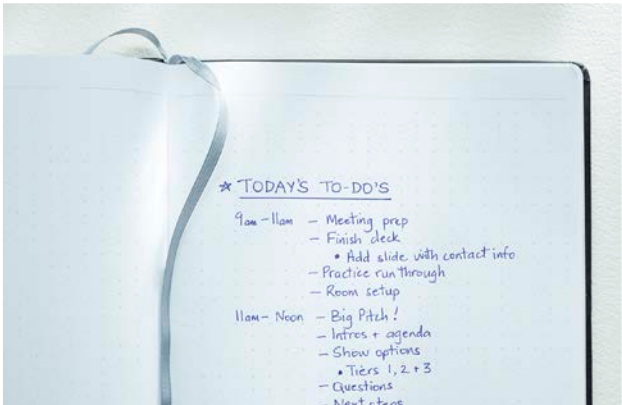 ☆ TODAY'S TO-DO'S
9am-11am - Meeting prep
- Finish deck
• Add slide with contact info
- Practice run through
- Room setup
11am - Noon - Big Pitch!
- Intros + agenda
- Show options
• Tiers 1, 2 + 3
- Questions
- Next steps